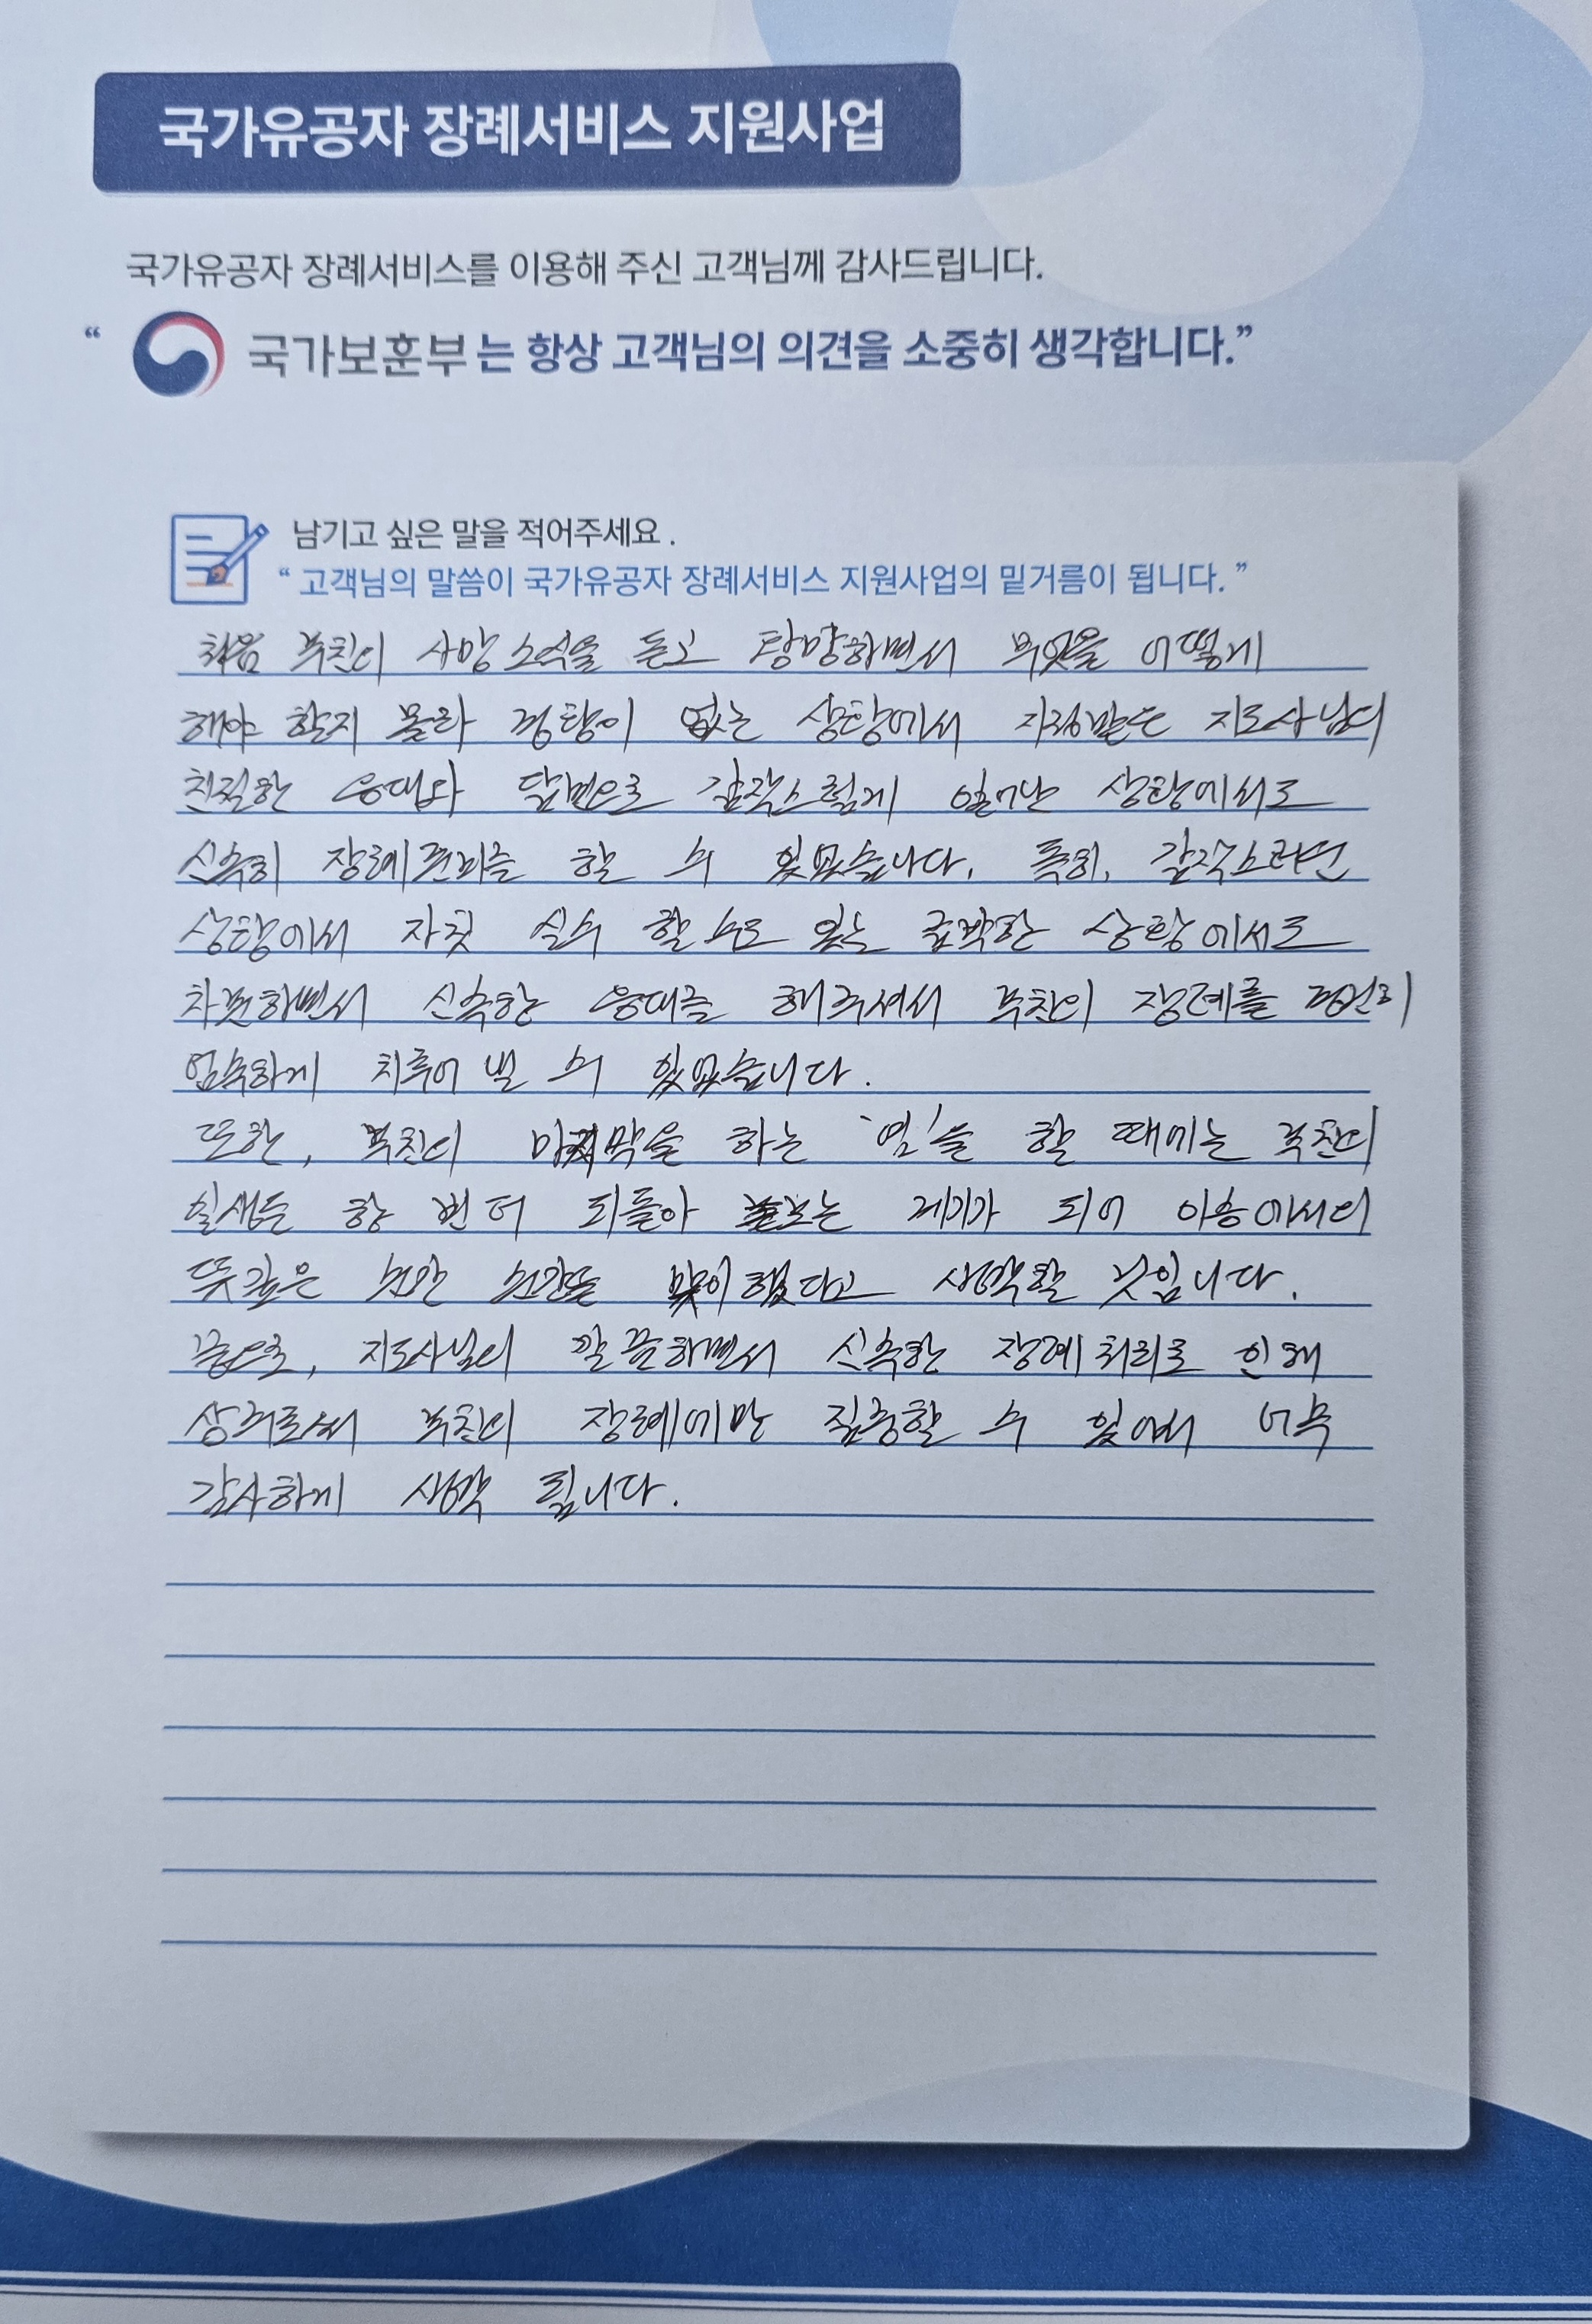 국가유공자 장례서비스 지원사업
국가유공자 장례서비스를 이용해 주신 고객님께 감사드립니다.
“ 국가보훈부는 항상 고객님의 의견을 소중히 생각합니다.”
남기고 싶은 말을 적어주세요 .
“ 고객님의 말씀이 국가유공자 장례서비스 지원사업의 밑거름이 됩니다. ”
처음 부친의 사망 소식을 듣고 당황하면서 무엇을 어떻게
해야 할지 몰라 경황이 없는 상황에서 지도사님의
친절한 응대와 답변으로 갑작스럽게 일어난 상황에서도
신속히 장례준비를 할 수 있었습니다. 특히, 갑작스러운
상황에서 자칫 실수 할 수도 있는 급박한 상황에서도
차분하면서 신속한 응대를 해주셔서 부친의 장례를
엄숙하게 치루어 낼 수 있었습니다.
또한, 부친의 마지막을 하는 '염'을 할 때에는 부친의
일생을 한 번 더 되돌아 보는 계기가 되어
뜻깊은 순간을 맞이했다고 생각할 것입니다.
끝으로, 지도사님의 깔끔하면서 신속한 장례처리로 인해
상주로써 부친의 장례에만 집중할 수 있어서 너무
감사하게 생각 됩니다.